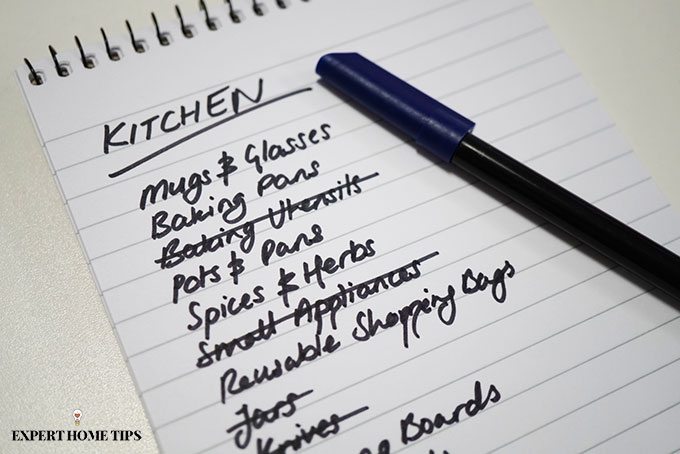 KITCHEN
Mugs & Glasses
Baking Pans
Baking Utensils
Pots & Pans
Spices & Herbs
Small Appliances
Reusable Shopping Bags
Jars
Knives
Boards
EXPERT HOME TIPS